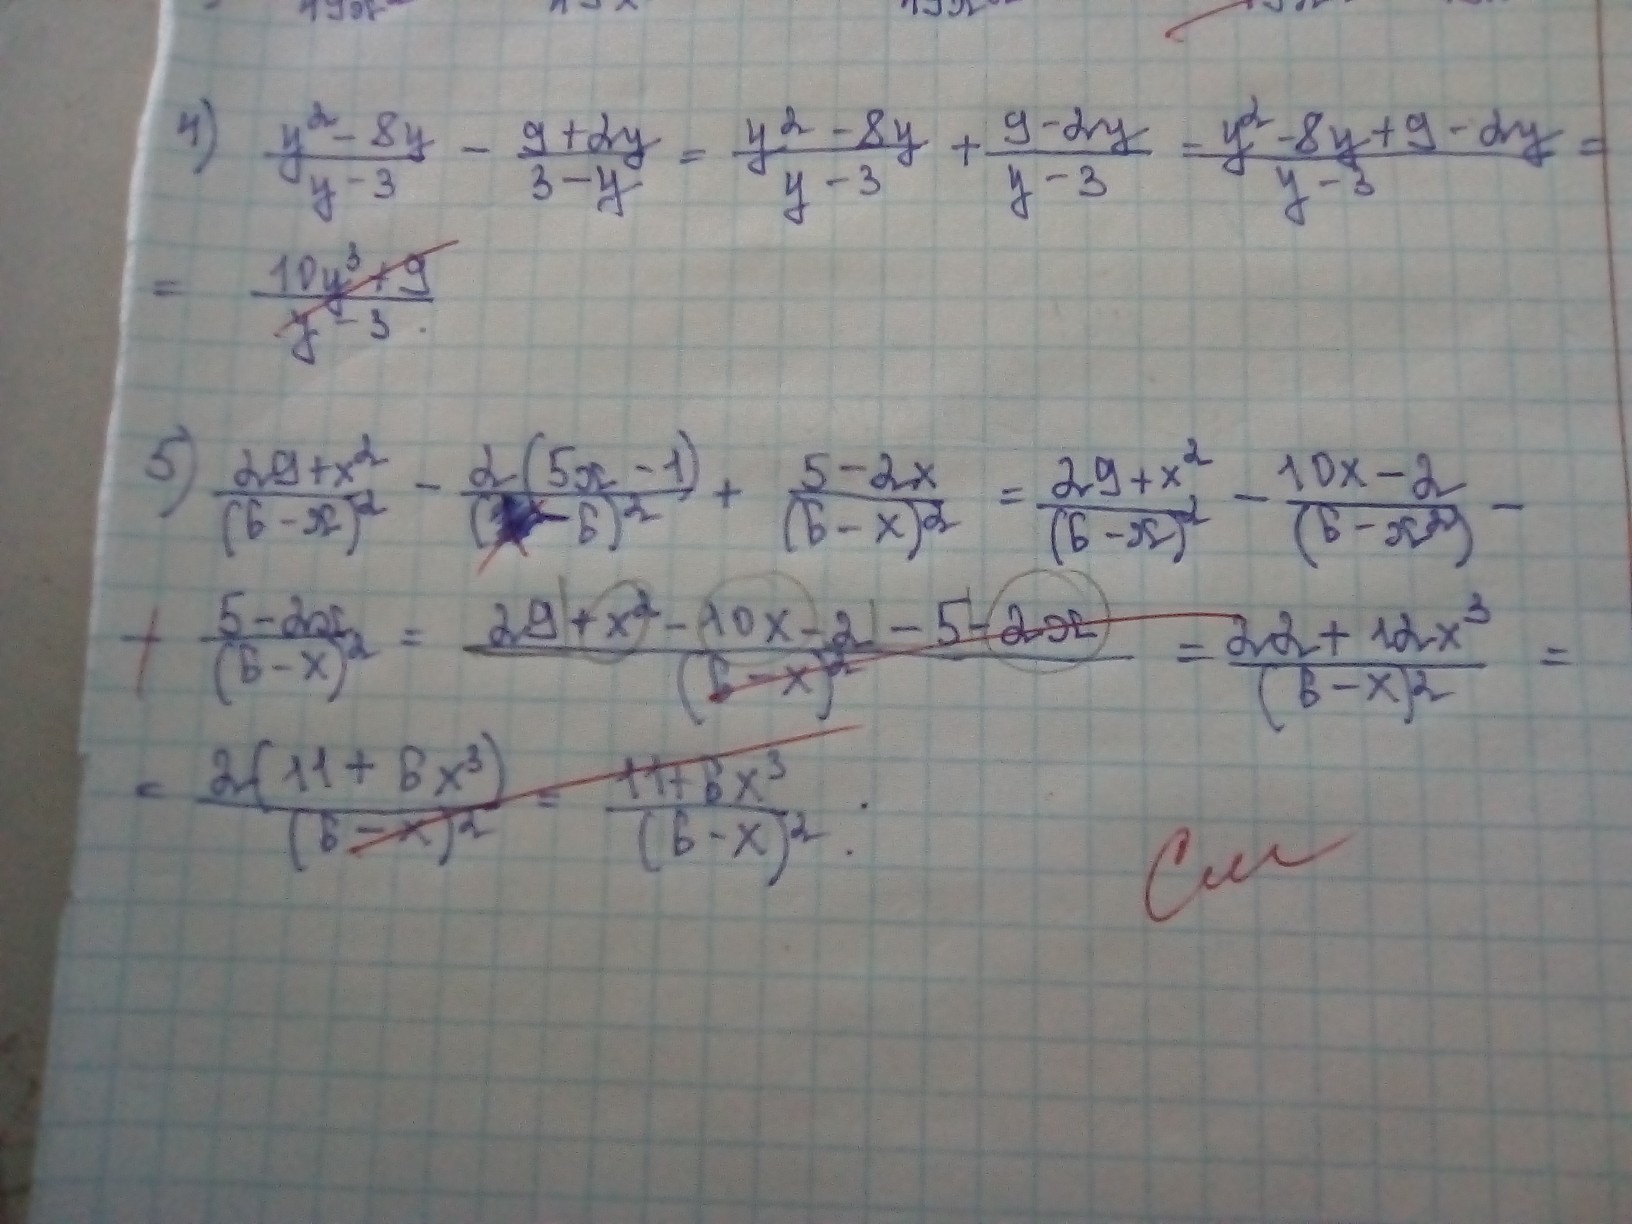 4) (y² - 8y)/(y - 3) - (9 + 2y)/(3 - y) = (y² - 8y)/(y - 3) + (9 - 2y)/(y - 3) = (y² - 8y + 9 - 2y)/(y - 3) =
= (10y³ + 9)/(y - 3).
5) (29 + x²)/(6 - x)² - 2(5x - 1)/(x - 6)² + (5 - 2x)/(6 - x)² = (29 + x²)/(6 - x)² - (10x - 2)/(6 - x²) -
+ (5 - 2x)/(6 - x)² = (29 + x² - 10x - 2 - 5 - 2x)/(6 - x)² = (22 + 12x³)/(6 - x)² =
= 2(11 + 6x³)/(6 - x)² = (11 + 6x³)/(6 - x)².
См